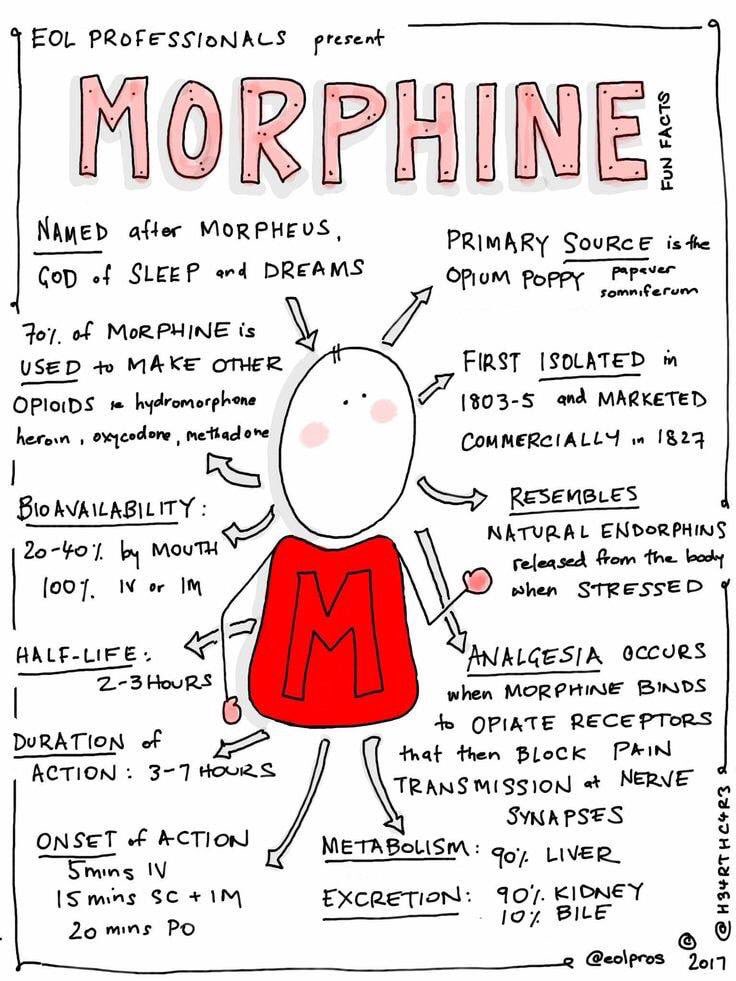 EOL PROFESSIONALS present
MORPHINE
FUN FACTS
NAMED after MORPHEUS,
GOD of SLEEP and DREAMS
PRIMARY SOURCE is the
OPIUM POPPY papaver
somniferum
70% of MORPHINE is
USED to MAKE OTHER
OPIOIDS ie hydromorphone
heroin, oxycodone, methadone
FIRST ISOLATED in
1803-5 and MARKETED
COMMERCIALLY in 1827
BIOAVAILABILITY:
20-40% by MOUTH
100% IV or IM
RESEMBLES
NATURAL ENDORPHINS
released from the body
when STRESSED
M
HALF-LIFE:
2-3 HOURS
ANALGESIA OCCURS
when MORPHINE BINDS
to OPIATE RECEPTORS
that then BLOCK PAIN
TRANSMISSION at NERVE
SYNAPSES
DURATION of
ACTION: 3-7 HOURS
ONSET of ACTION
5mins IV
15 mins SC + IM
20 mins PO
METABOLISM: 90% LIVER
EXCRETION: 90% KIDNEY
10% BILE
@H34RTHC4R3
@eolpros © 2017